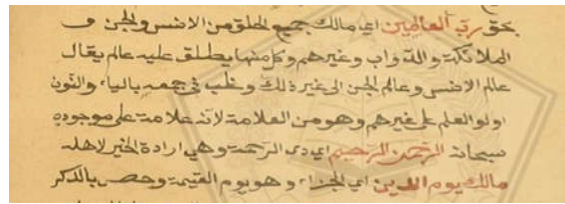 بحق رب العالمين اي مالك جميع الخلق من الانس والجن و
الملائكة والدواب وغيرهم وكل منها يطلق عليه عالم يقال
عالم الانس وعالم الجن الى غير ذلك وغلب في جمعه بالياء والنون
اولو العلم على غيرهم وهو من العلامة لانه علامة على موجوده
سبحانه الرحمن الرحيم اي ذى الرحمة وهي ارادة الخير لاهله
مالك يوم الدين اي الجزاء وهو يوم القيمة وخص بالذكر